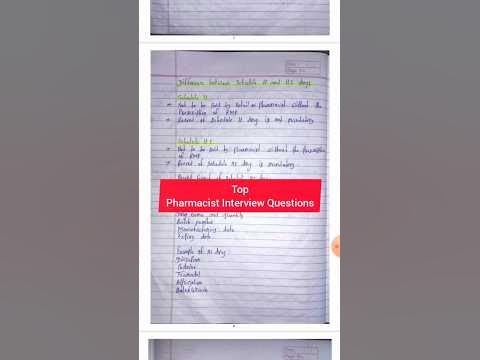 Difference between Schedule H and H1 drugs
Schedule H
Not to be Sold by Retail or Pharmacist without the
Prescription of RMP
Record of Schedule H drug is not mandatory
Schedule H1
Not to be Sold by Pharmacist without the Prescription
of RMP
Record of Schedule H1 drug is mandatory
Top
Pharmacist Interview Questions
Drug name and quantity
Batch number
Manufacturing date
Expiry date
Example of H1 drug
Diazepam
Codeine
Tramadol